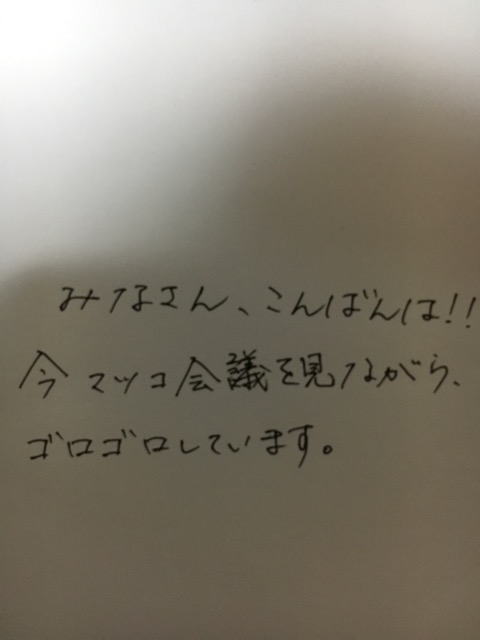 みなさん、こんばんは!!
今マツコ会議を見ながら、
ゴロゴロしています。